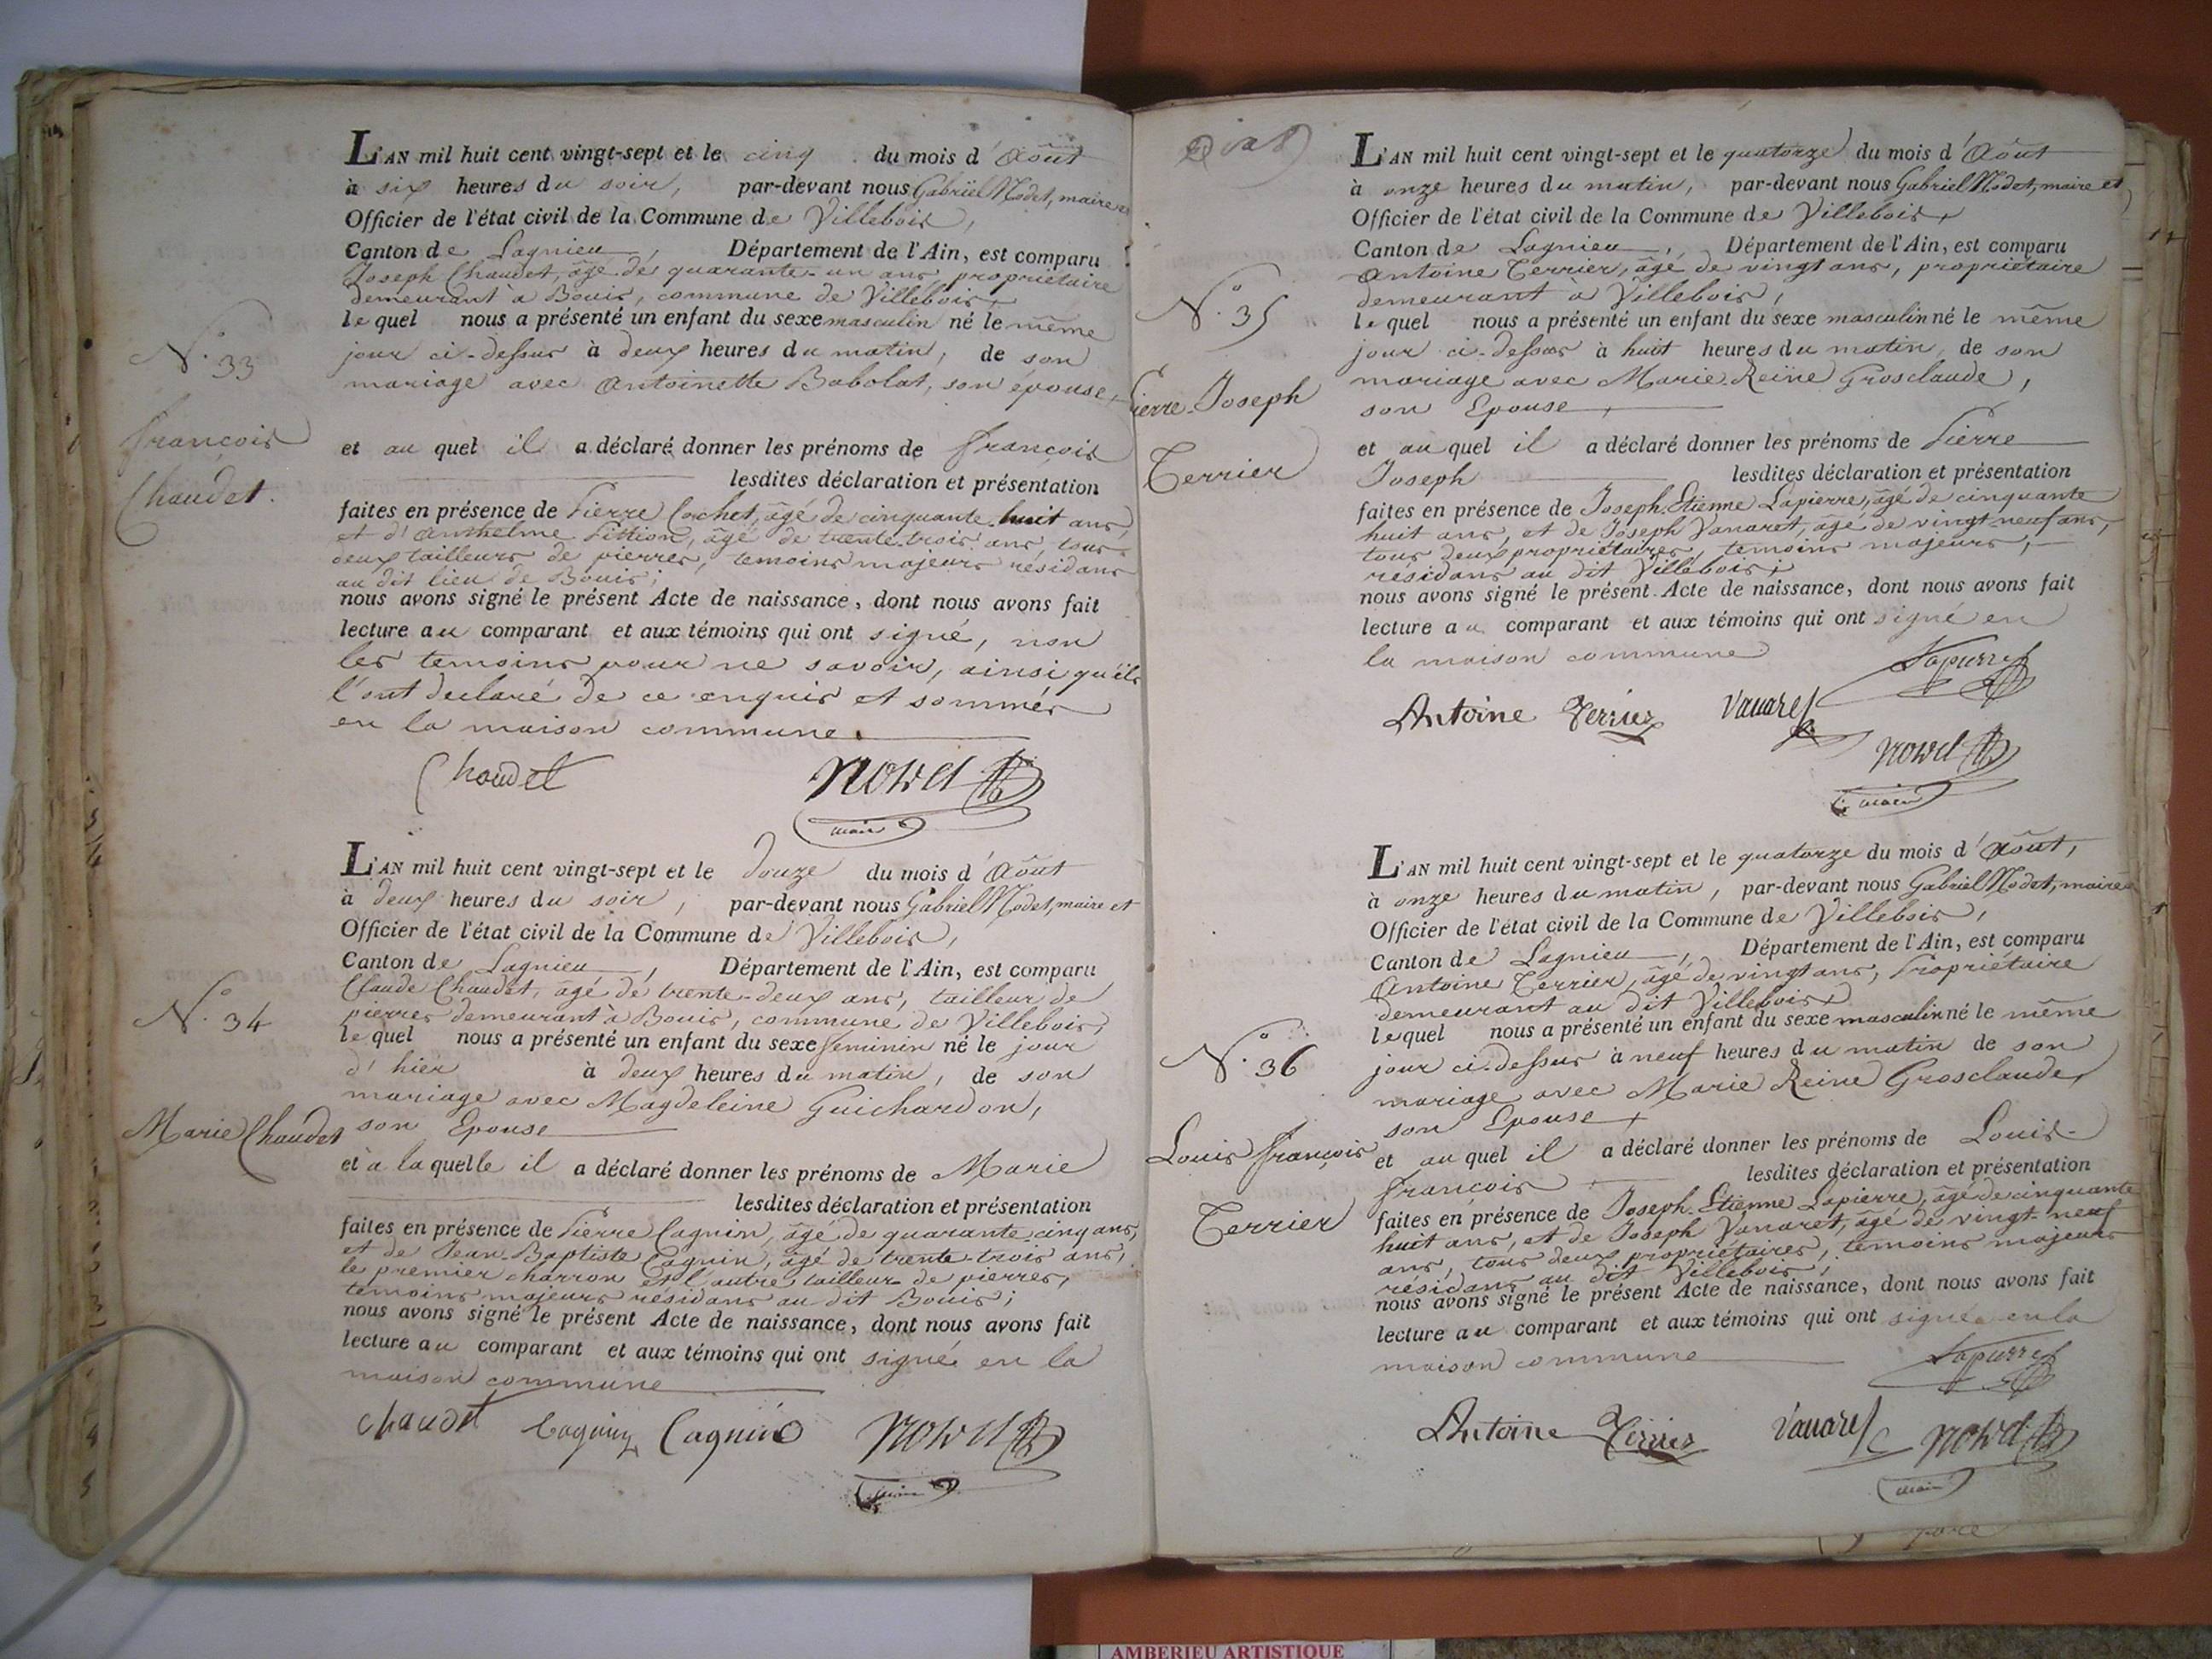 L'AN mil huit cent vingt-sept et le cinq du mois d'Août
à six heures du soir, par-devant nous Gabriel Nodet, maire et
Officier de l'état civil de la Commune de Villebois,
Canton de Lagnieu, Département de l'Ain, est comparu
Joseph Chaudet, âgé de quarante-un ans, propriétaire
demeurant à Bouis, commune de Villebois,
lequel nous a présenté un enfant du sexe masculin né le même
N.° 33
jour ci-dessus à deux heures du matin, de son
mariage avec Antoinette Babolat, son épouse,
François
Chaudet.
et au quel il a déclaré donner les prénoms de François
lesdites déclaration et présentation
faites en présence de Pierre Cochet, âgé de cinquante-huit ans,
et d'Anthelme Pittion, âgé de trente-trois ans, tous
deux tailleurs de pierres, temoins majeurs résidans
au dit lieu de Bouis;
nous avons signé le présent Acte de naissance, dont nous avons fait
lecture au comparant et aux témoins qui ont signé, non
les temoins pour ne savoir, ainsi qu'ils
l'ont declaré de ce enquis et sommés
en la maison commune.
Chaudet Nodet
maire
L'AN mil huit cent vingt-sept et le douze du mois d'Août
à deux heures du soir, par-devant nous Gabriel Nodet, maire et
Officier de l'état civil de la Commune de Villebois,
Canton de Lagnieu, Département de l'Ain, est comparu
Claude Chaudet, âgé de trente-deux ans, tailleur de
pierres demeurant à Bouis, commune de Villebois,
N.° 34
lequel nous a présenté un enfant du sexe feminin né le jour
d'hier à deux heures du matin, de son
mariage avec Magdeleine Guichardon,
Marie Chaudet
son Epouse
et à la quelle il a déclaré donner les prénoms de Marie
lesdites déclaration et présentation
faites en présence de Pierre Cagnin, âgé de quarante-cinq ans,
et de Jean-Baptiste Cagnin, âgé de trente-trois ans,
le premier charron et l'autre tailleur de pierres,
temoins majeurs résidans au dit Bouis;
nous avons signé le présent Acte de naissance, dont nous avons fait
lecture au comparant et aux témoins qui ont signé en la
maison commune
Chaudet Cagnin Cagnin Nodet
maire
L'AN mil huit cent vingt-sept et le quatorze du mois d'Août
à onze heures du matin, par-devant nous Gabriel Nodet, maire et
Officier de l'état civil de la Commune de Villebois,
Canton de Lagnieu, Département de l'Ain, est comparu
Antoine Terrier, âgé de vingt ans, propriétaire
demeurant à Villebois,
N.° 35
lequel nous a présenté un enfant du sexe masculin né le même
jour ci-dessus à huit heures du matin, de son
mariage avec Marie-Reine Grosclaude,
Pierre-Joseph
Terrier
son Epouse,
et au quel il a déclaré donner les prénoms de Pierre
Joseph lesdites déclaration et présentation
faites en présence de Joseph-Etienne Lapierre, âgé de cinquante
huit ans, et de Joseph Vanaret, âgé de vingt neuf ans,
tous deux propriétaires, temoins majeurs,
résidans au dit Villebois;
nous avons signé le présent Acte de naissance, dont nous avons fait
lecture au comparant et aux témoins qui ont signé en
la maison commune
Lapierre
Antoine Terrier Vanaret
Nodet
maire
L'AN mil huit cent vingt-sept et le quatorze du mois d'Août,
à onze heures du matin, par-devant nous Gabriel Nodet, maire
Officier de l'état civil de la Commune de Villebois,
Canton de Lagnieu, Département de l'Ain, est comparu
Antoine Terrier, âgé de vingt ans, Propriétaire
demeurant au dit Villebois
lequel nous a présenté un enfant du sexe masculin né le même
N.° 36
jour ci-dessus à neuf heures du matin de son
mariage avec Marie Reine Grosclaude,
son Epouse,
Louis François
Terrier
et au quel il a déclaré donner les prénoms de Louis-
François lesdites déclaration et présentation
faites en présence de Joseph-Etienne Lapierre, âgé de cinquante
huit ans, et de Joseph Vanaret, âgé de vingt-neuf
ans, tous deux propriétaires, temoins majeurs
résidans au dit Villebois;
nous avons signé le présent Acte de naissance, dont nous avons fait
lecture au comparant et aux témoins qui ont signé en la
maison commune
Lapierre
Antoine Terrier Vanaret Nodet
maire
AMBERIEU ARTISTIQUE